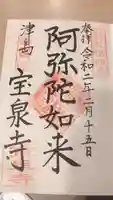 奉拝 令和二年二月十五日
阿弥陀如来
津島 宝泉寺